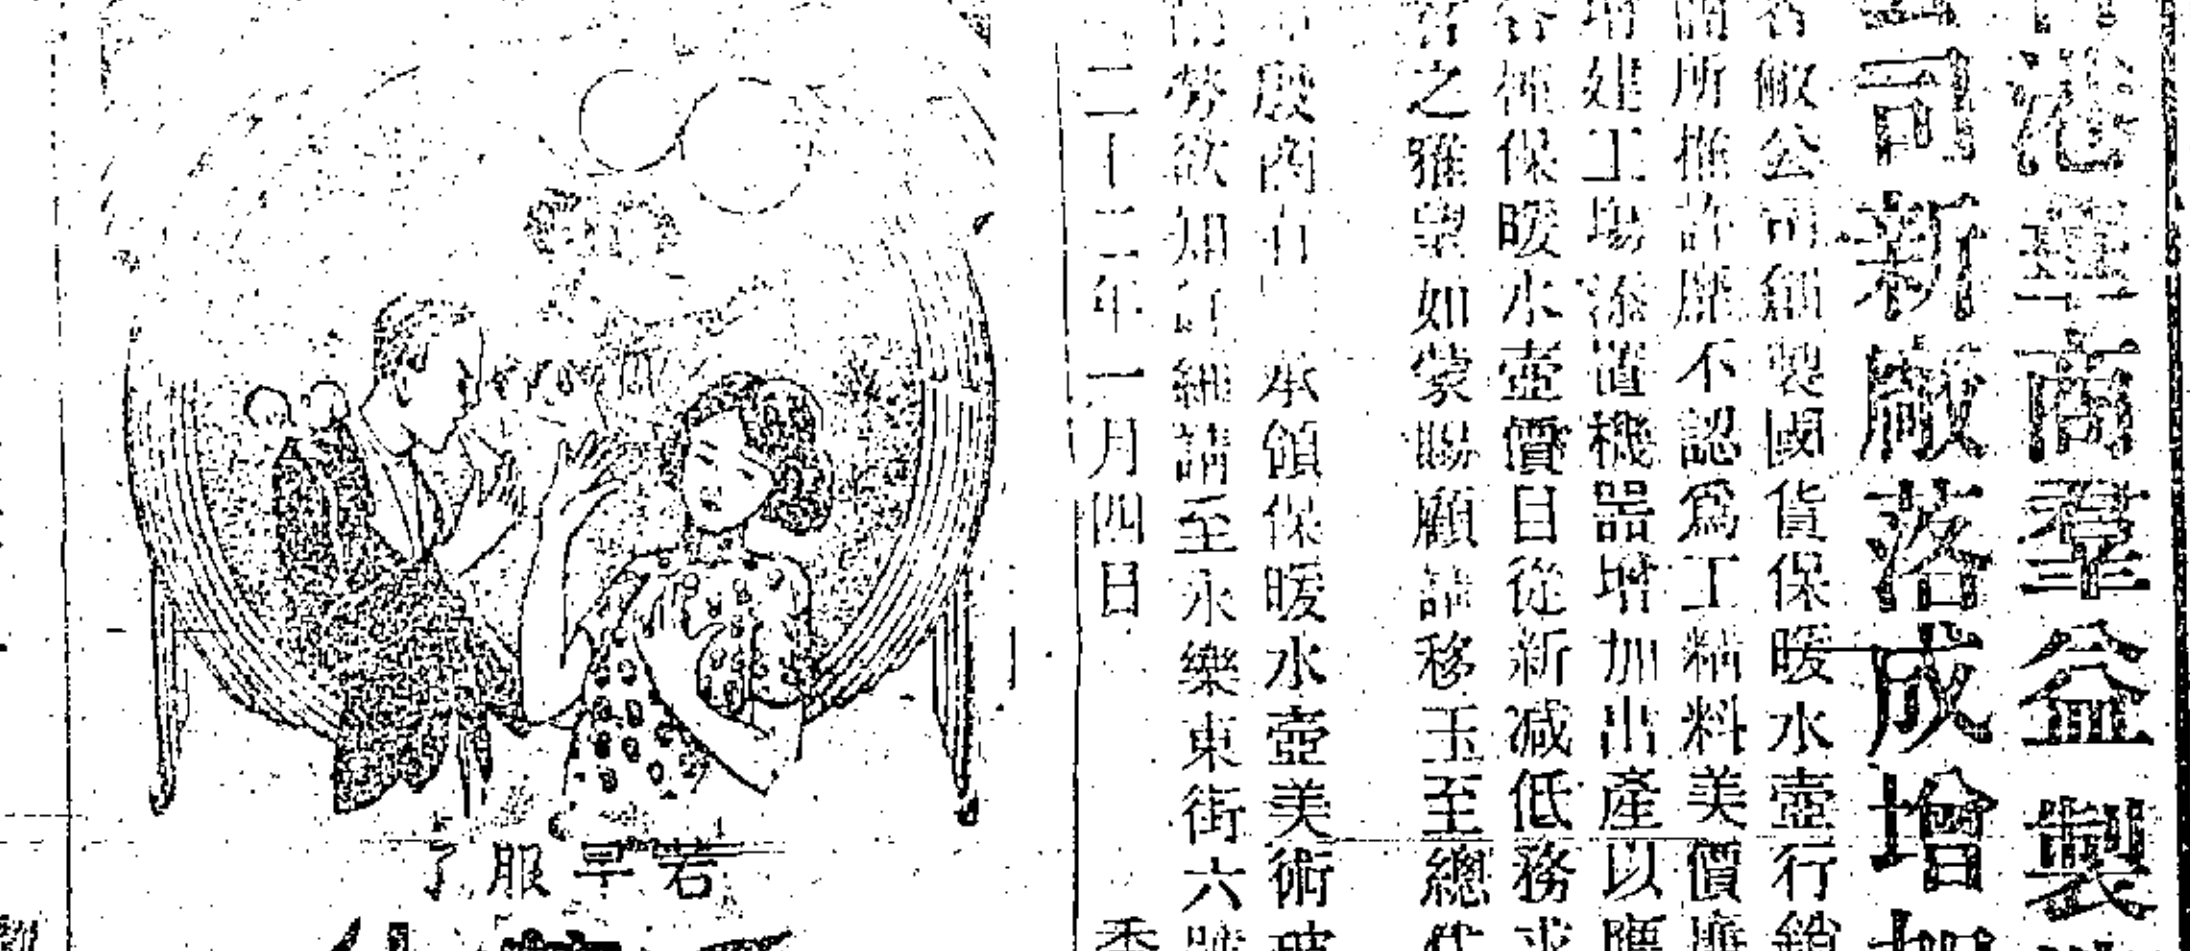 港華商羣益製
司新廠落成增
敝公司創製國貨保暖水壺行銷
所推許靡不認爲工精料美價廉
增建工場添置機器增加出產以應
各種保暖水壺價目從新减低務求
之雅望如蒙賜顧請移玉至總代
殷商有 本領保暖水壺美術玻
勞欲知詳細請至永樂東街六號
二十二年一月四日 香
若早服了